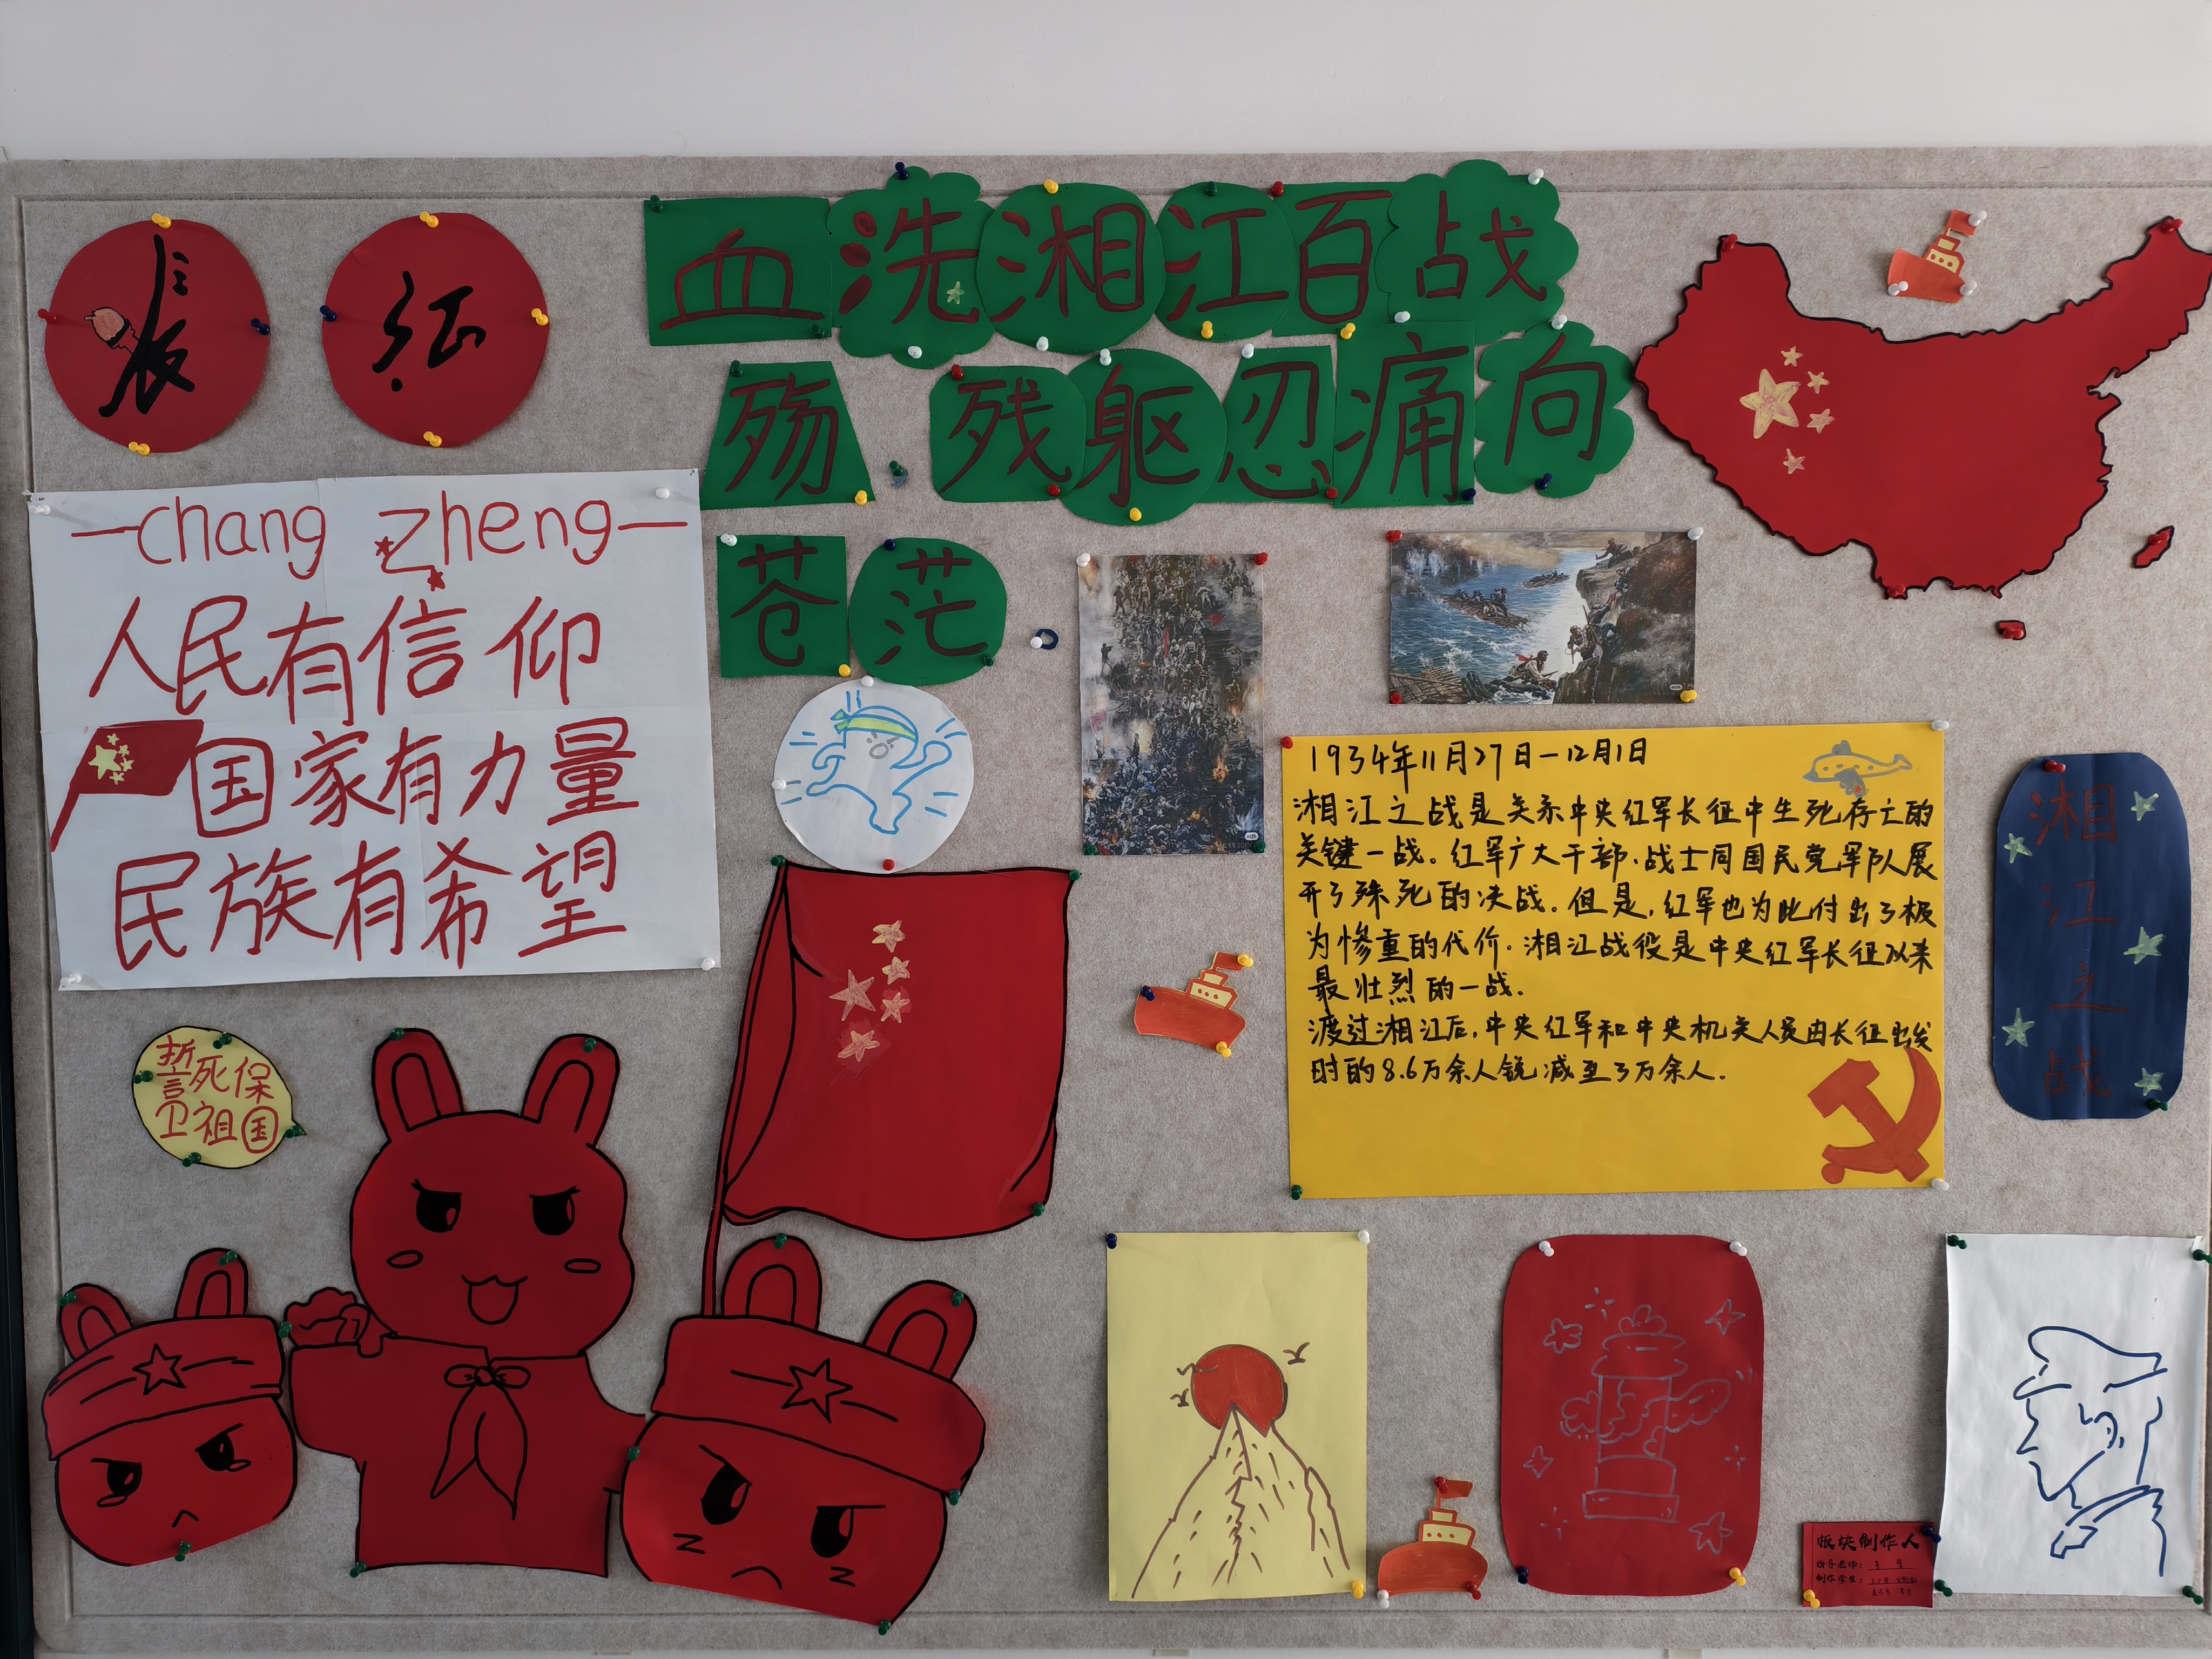 长征
血洗湘江百战
殇.残躯忍痛向
苍茫
—chang zheng—
人民有信仰
国家有力量
民族有希望
誓死保
卫祖国
1934年11月27日—12月1日
湘江之战是关系中央红军长征中生死存亡的
关键一战。红军广大干部、战士同国民党军队展
开了殊死的决战。但是,红军也为此付出了极
为惨重的代价.湘江战役是中央红军长征以来
最壮烈的一战.
渡过湘江后,中央红军和中央机关人员由长征出发
时的8.6万余人锐减至3万余人.
湘
江
之
战
板块制作人
指导老师:
制作学生: